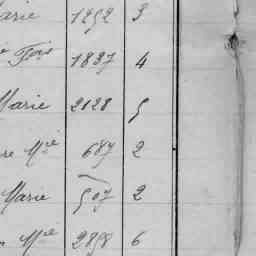 Marie 1252 3
1837 4
Marie 2128 5
re Mie 687 2
Marie 507 2
Mie 2898 6